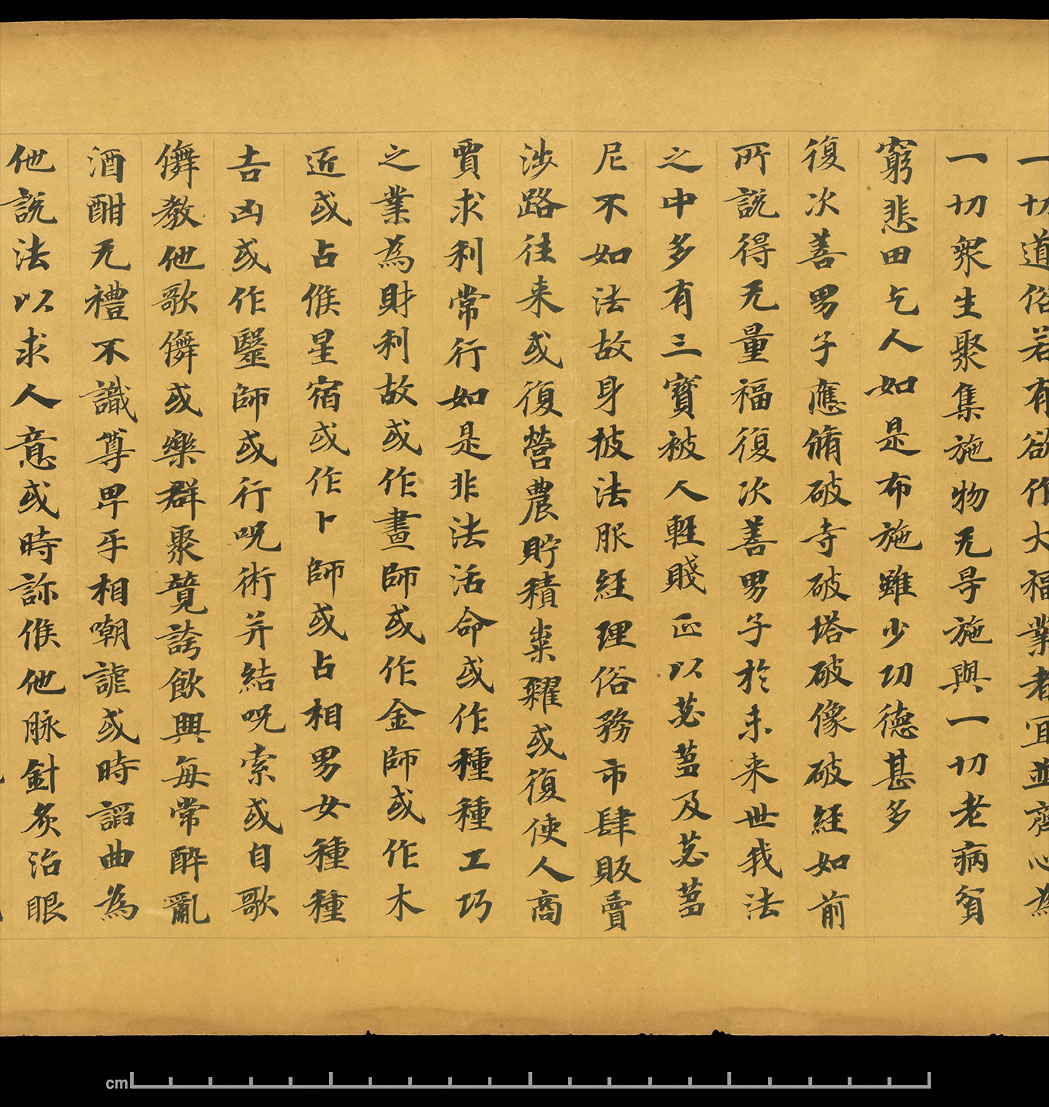 一切道俗若有欲作大福業者宜並齊心為
一切衆生聚集施物无㝵施與一切老病貧
窮悲田乞人如是布施雖少功德甚多
復次善男子應脩破寺破塔破像破經如前
所說得无量福復次善男子於未来世我法
之中多有三寶被人輕賤正以苾蒭及苾蒭
尼不如法故身披法服經理俗務市肆販賣
涉路往来或復營農貯積粜糴或復使人商
賈求利常行如是非法活命或作種種工巧
之業為財利故或作畫師或作金師或作木
近或占候星宿或作卜師或占相男女種種
吉凶或作毉師或行呪術并結呪索或自歌
儛教他歌儛或樂群聚競誇飲興每常酔亂
酒酣无禮不識尊卑乎相嘲謔或時謟曲為
他說法以求人意或時診候他脉針灸治眼
cm